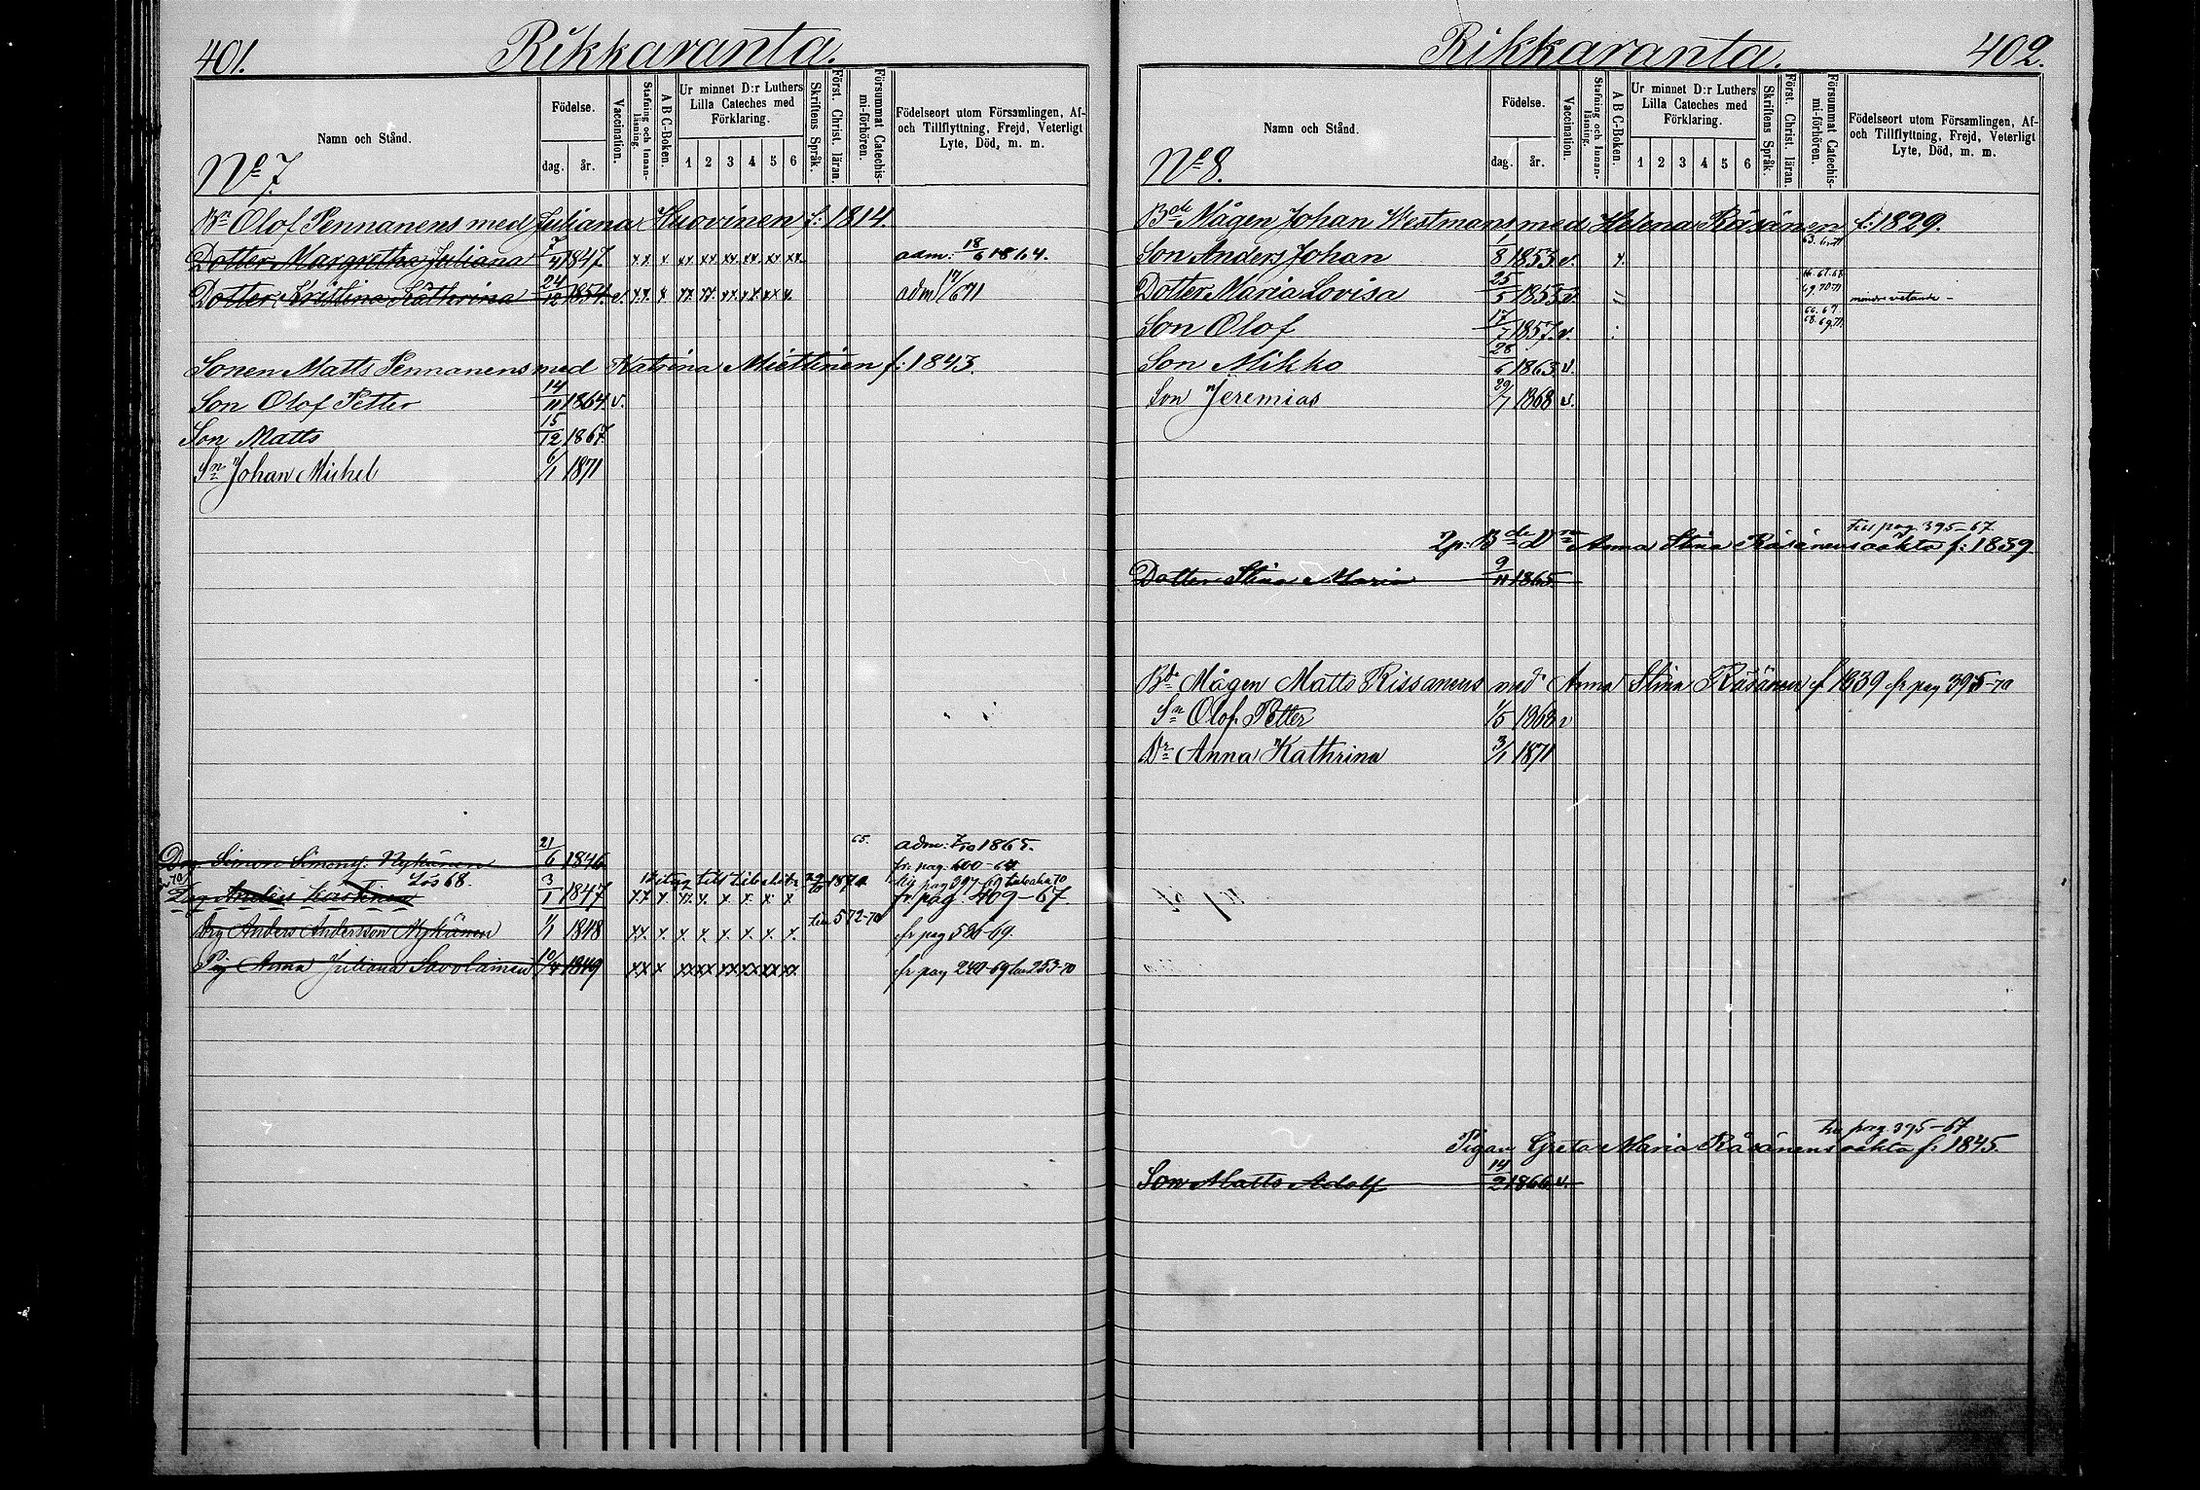 401. Rikkaranta.
Namn och Stånd.
Födelse.
dag. år.
Vaccination.
Stafning och Innanläsning.
A B C-Boken.
Ur minnet D:r Luthers Lilla Cateches med Förklaring.
1 2 3 4 5 6
Skriftens Språk.
Först. Christ. läran.
Försummat Catechismi-förhören.
Födelseort utom Församlingen, Af- och Tillflyttning, Frejd, Veterligt Lyte, Död, m. m.
No 7.
Bn Olof Pennanens med Juliana Huovinen f: 1814.
Dotter Margretha Juliana 1847 xx x xx xx xx xx xx xx adm: 18/6 1864.
Dotter Kristina Kathrina 24/12 1854. v. xx x xx xx xx xx x adm 17/6 71
Sonen Matts Pennanens med Katrina Miettinen f: 1843.
Son Olof Petter 14/11 1864 v.
Son Matts 15/12 1867
Sn Johan Michel 6/1 1871
Drg Simon Simons: Nykänen 21/6 1846 65. adm: 7/10 1865.
fr: pag: 600-64
Lös 68.
Drg 3/1 1847 xx x. xx. x. x x. x. x fr pag. 409-67
Drg Anders Andersson Nykänen 1/1 1848 xx. x. x. x. x. x. x. x. 572-70 fr pag 526-69.
Pig Anna Juliana Savolainen 10/4 1849 xx x xx xx xx xx xx xx fr pag 240-69 253-70
Rikkaranta. 402.
Namn och Stånd.
Födelse.
dag. år.
Vaccination.
Stafning och Innanläsning.
A B C-Boken.
Ur minnet D:r Luthers Lilla Cateches med Förklaring.
1 2 3 4 5 6
Skriftens Språk.
Först. Christ. läran.
Försummat Catechismi-förhören.
Födelseort utom Församlingen, Af- och Tillflyttning, Frejd, Veterligt Lyte, Död, m. m.
No 8.
Bde Mågen Johan Westmans med Helena Räsänen f: 1829.
Son Anders Johan 1/8 1853 v. x.
Dotter Maria Lovisa 25/5 1853 v. 69. 70-71 mindre vetande -
Son Olof 17/7 1857. v. 66. 67 68. 69. 71
Son Mikko 28/6 1863 v.
Son Jeremias 29/7 1868 v.
pag 395-67.
Anna Stina Räsänens oäkta f: 1839
Dotter Stina Maria 9/11 1865
Bde Mågen Matts Rissanens med Anna Stina Räsänen f 1839 fr pag 395-70
Sn Olof Petter 1/5 1868 v
Dr Anna Kathrina 3/1 1871
pag 395-67
Pigan Greta Maria Räsänens oäkta f: 1845.
Son Matts Adolf 14/2 1866 v.